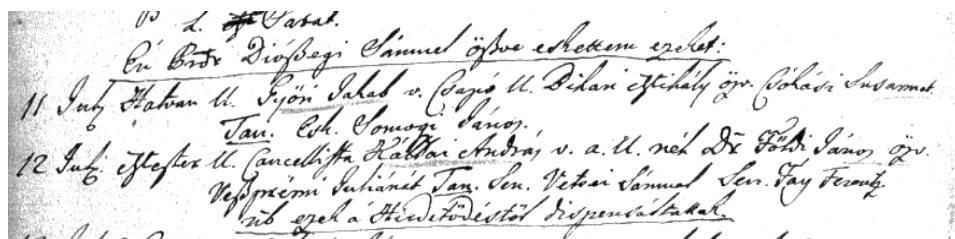 L. Sabat.
Én Bndr Diószegi Sámuel öszve eskettem ezeket:
11 Julij Hatvan U. Győri Jakab v. Csapó U. Bihari Mihály özv. Csóhási Susannát.
Tan. Esk. Somogi János.
12 Julij. Mester U. Cancellista András v. a. U. néh Dr. Földi János özv.
Veszprémi Juliánát Tan. Sen. Vetsei Sámuel Sen. Fay Ferentz.
nb ezek a Hirdetődéstől dispensáltattak.